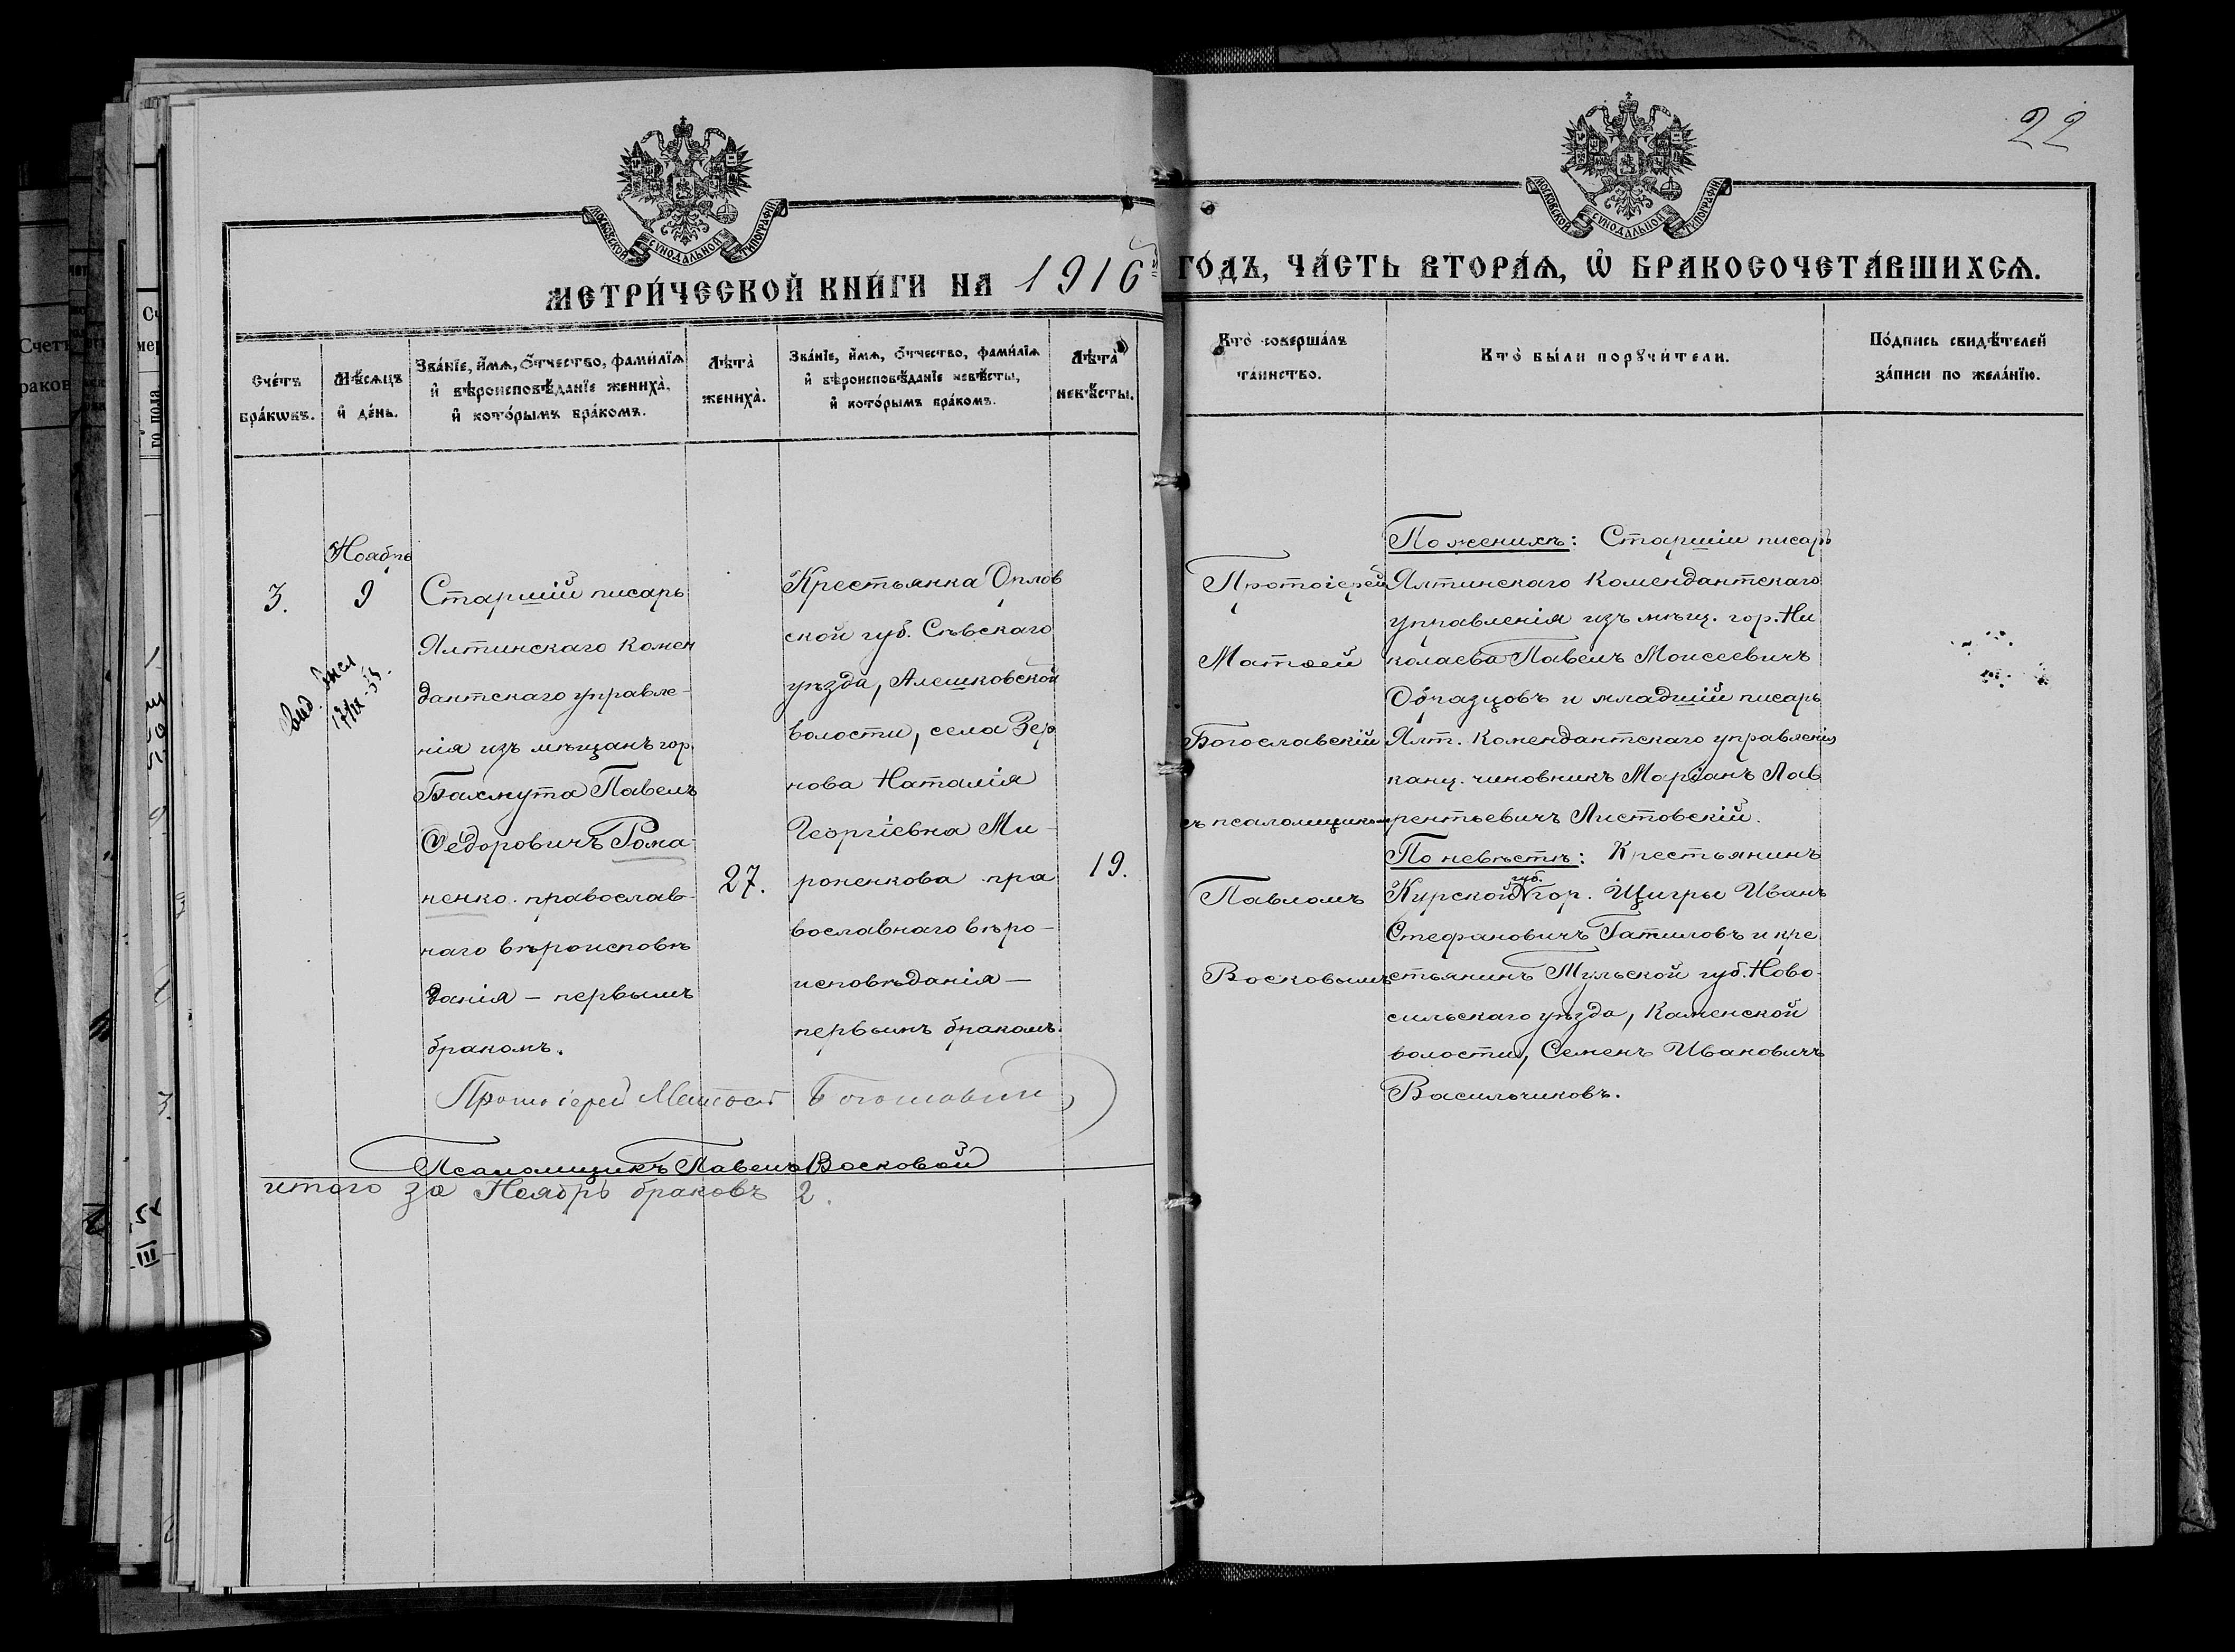 22
МОСКОВСКОЙ СѴНОДАЛЬНОЙ ТИПОГРАФІИ
МОСКОВСКОЙ СѴНОДАЛЬНОЙ ТИПОГРАФІИ
МЕТРИ́ЧЕСКОЙ КНИ́ГИ НА 1916й ГО́ДЪ, ЧА́СТЬ ВТОРА́Ѧ, Ѡ҆ БРАКОСОЧЕТА́ВШИХСѦ.
Сче́тъ
бра́кѡвъ.
Мѣ́сѧцъ
и҆ де́нь.
Зва́нїе, и҆́мѧ, ѻ҆́тчество, фами́лїѧ
и҆ вѣроисповѣ́данїе жениха̀,
и҆ кото́рымъ бра́комъ.
Лѣта̀
жениха̀.
Зва́нїе, и҆́мѧ, ѻ҆́тчество, фами́лїѧ
и҆ вѣроисповѣ́данїе невѣ́сты,
и҆ кото́рымъ бра́комъ.
Лѣта̀
невѣ́сты.
Кто̀ соверша́лъ
та́инство.
Кто̀ бы́ли порꙋчи́тели.
По́дпись свидѣ́телей
за́писи по жела́нїю.
3.
Ноябрь
9
Старшій писарь
Ялтинскаго комен
дантскаго управле-
нія изъ мѣщанъ гор.
Бахмута Павелъ
Ѳедоровичъ Рома-
ненко. православ-
наго вѣроисповѣ
данія – первымъ
бракомъ.
27.
Крестьянка Орлов
ской губ. Сѣвскаго
уѣзда, Алешковской
волости, села Зер
нова Наталія
Георгіевна Ми-
роненкова пра
вославнаго вѣро-
исповѣданія –
первымъ бракомъ.
19.
Протоіерей
Матѳей
Богославскій
съ псаломщикомъ
Павломъ
Восковымъ
По женихѣ: Старшій писарь
Ялтинскаго Комендантскаго
управленія изъ мѣщ. гор. Ни
колаева Павелъ Моисеевичъ
Образцовъ и младшій писарь
Ялт. Комендантскаго управленія
канц. чиновникъ Маріанъ Лав
рентьевичъ Листовскій.
По невѣстѣ: Крестьянинъ
Курской губ. гор. Щигры Иванъ
Стефановичъ Гатиловъ и кре
стьянинъ Тульской губ. Ново-
сильскаго уѣзда, Каменской
волости, Семенъ Ивановичъ
Васильчиковъ.
Протоіерей Матѳей Богославскій
Псаломщикъ Павелъ Восковой
итого за Ноябрь браковъ 2.
Счетъ
раков